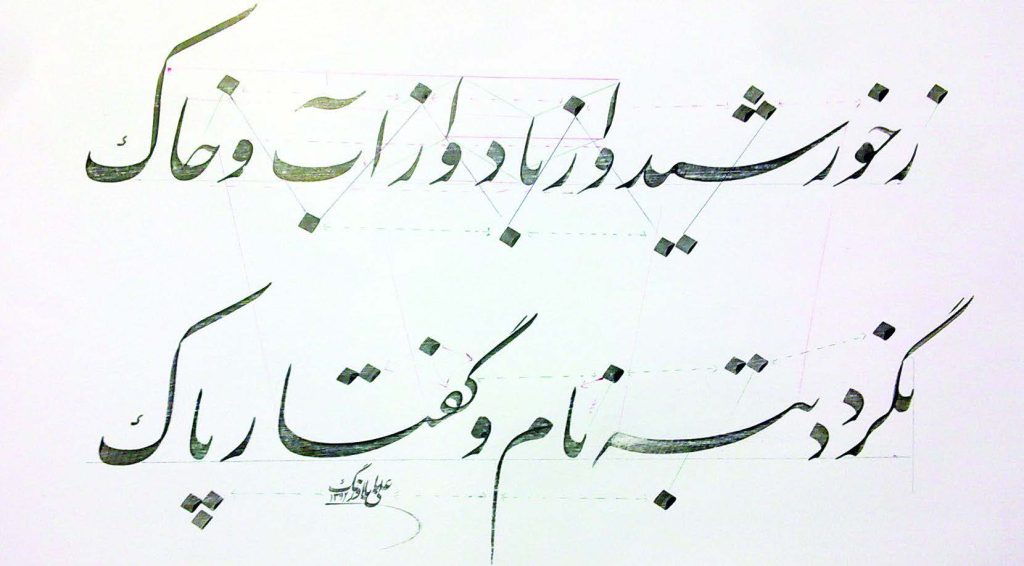 ز خورشید و از باد و از آب و خاک
نگردد تبه نام و گفتار پاک
علی
۱۳۹۲